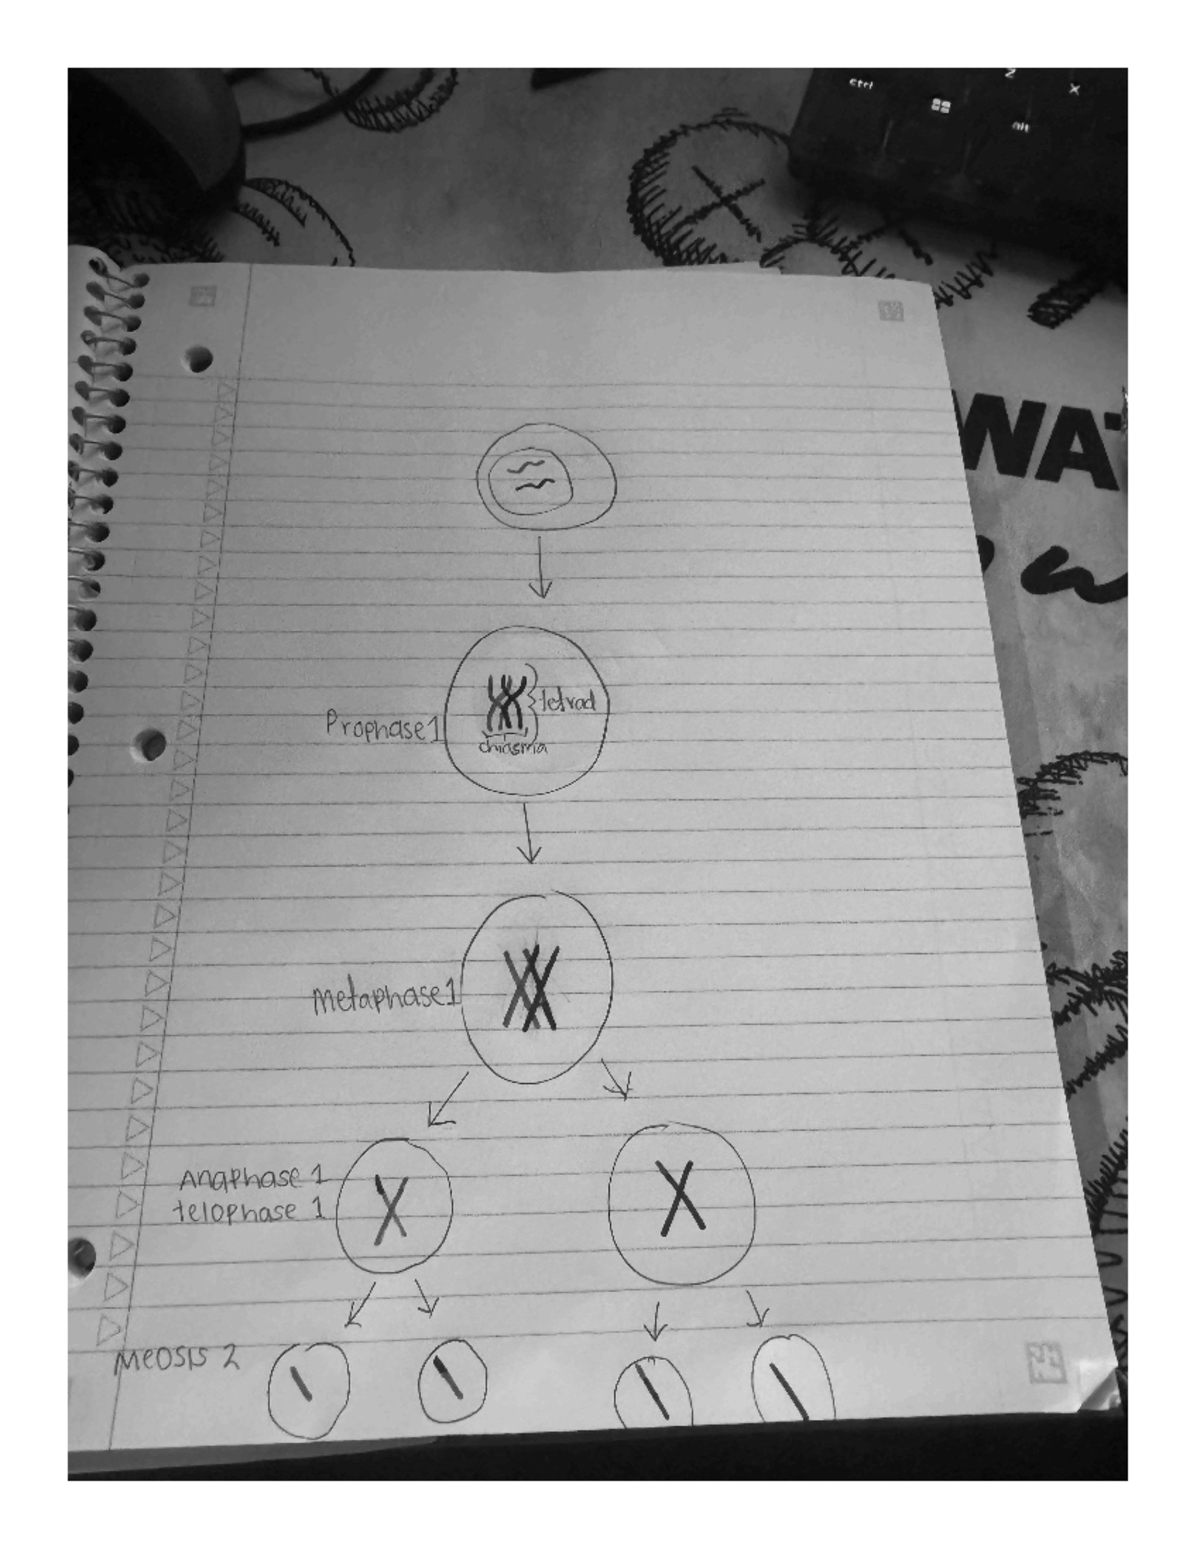 ctrl
z
x
alt
WAT
tetrad
Prophase 1
chiasma
metaphase 1
Anaphase 1
telophase 1
Meosis 2